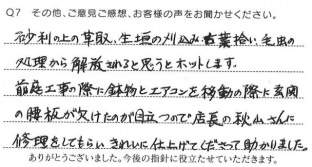 Q7 その他、ご意見ご感想、お客様の声をお聞かせください。
砂利の上の草取、生垣の刈込み 古葉拾い、毛虫の
処理から解放されると思うとホットします。
前庭工事の際に鉢物とエアコンを移動の際に玄関
の腰板が欠けたのが目立つので店長の秋山さんに
修理をしてもらい きれいに仕上げてくださって助かりました。
ありがとうございました。今後の指針に役立たせていただきます。